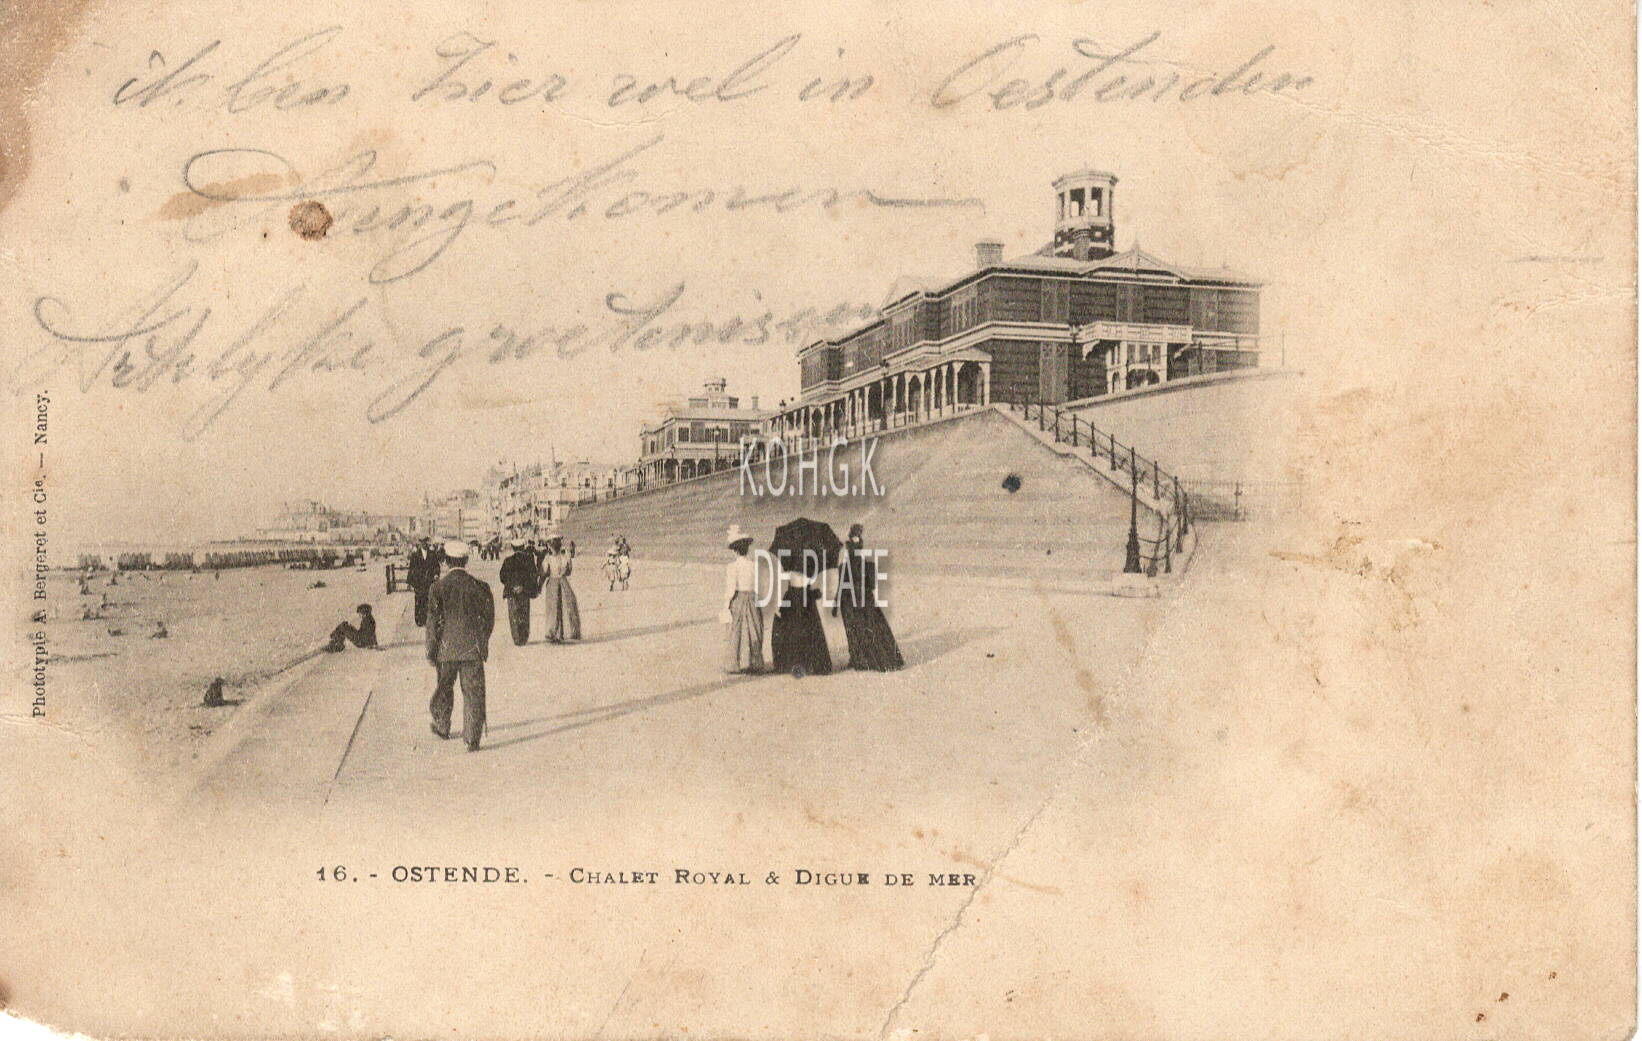 ik ben hier wel in Oestenden
Aangekomen
Hertelyke groetenissen
K.O.H.G.K.
DE PLATE
Phototypie A. Bergeret et Cie. — Nancy.
16. - OSTENDE. - CHALET ROYAL & DIGUE DE MER